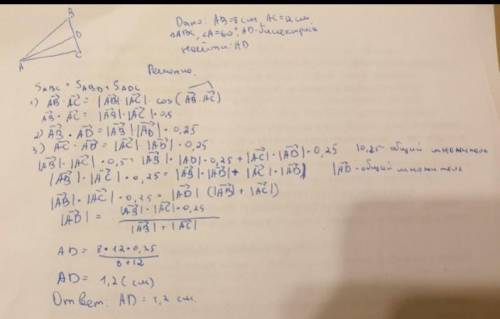 B
D
A
C
Дано: AB=8 см, AC=12 см
△ABC, ∠A=60°, AD-биссектриса
Найти: AD
Решение
S_ABC = S_ABD + S_ADC
1) AB·AC = |AB|·|AC|·cos(AB·AC)
AB·AC = |AB|·|AC|·0,5
2) AB·AD=|AB|·|AD|·0,25
3) AC·AD=|AC|·|AD|·0,25
|AB|·|AC|·0,5=|AB|·|AD|·0,25+|AC|·|AD|·0,25 |0,25 общий множитель
|AB|·|AC|·0,25=|AB|·|AD|+|AC|·|AD| |AD-общий множитель
|AB|·|AC|·0,25=|AD|(|AB|+|AC|)
|AD| = |AB|·|AC|·0,25
|AB|+|AC|
AD= 8·12·0,25
8+12
AD= 1,2 (см)
Ответ: AD=1,2 см.